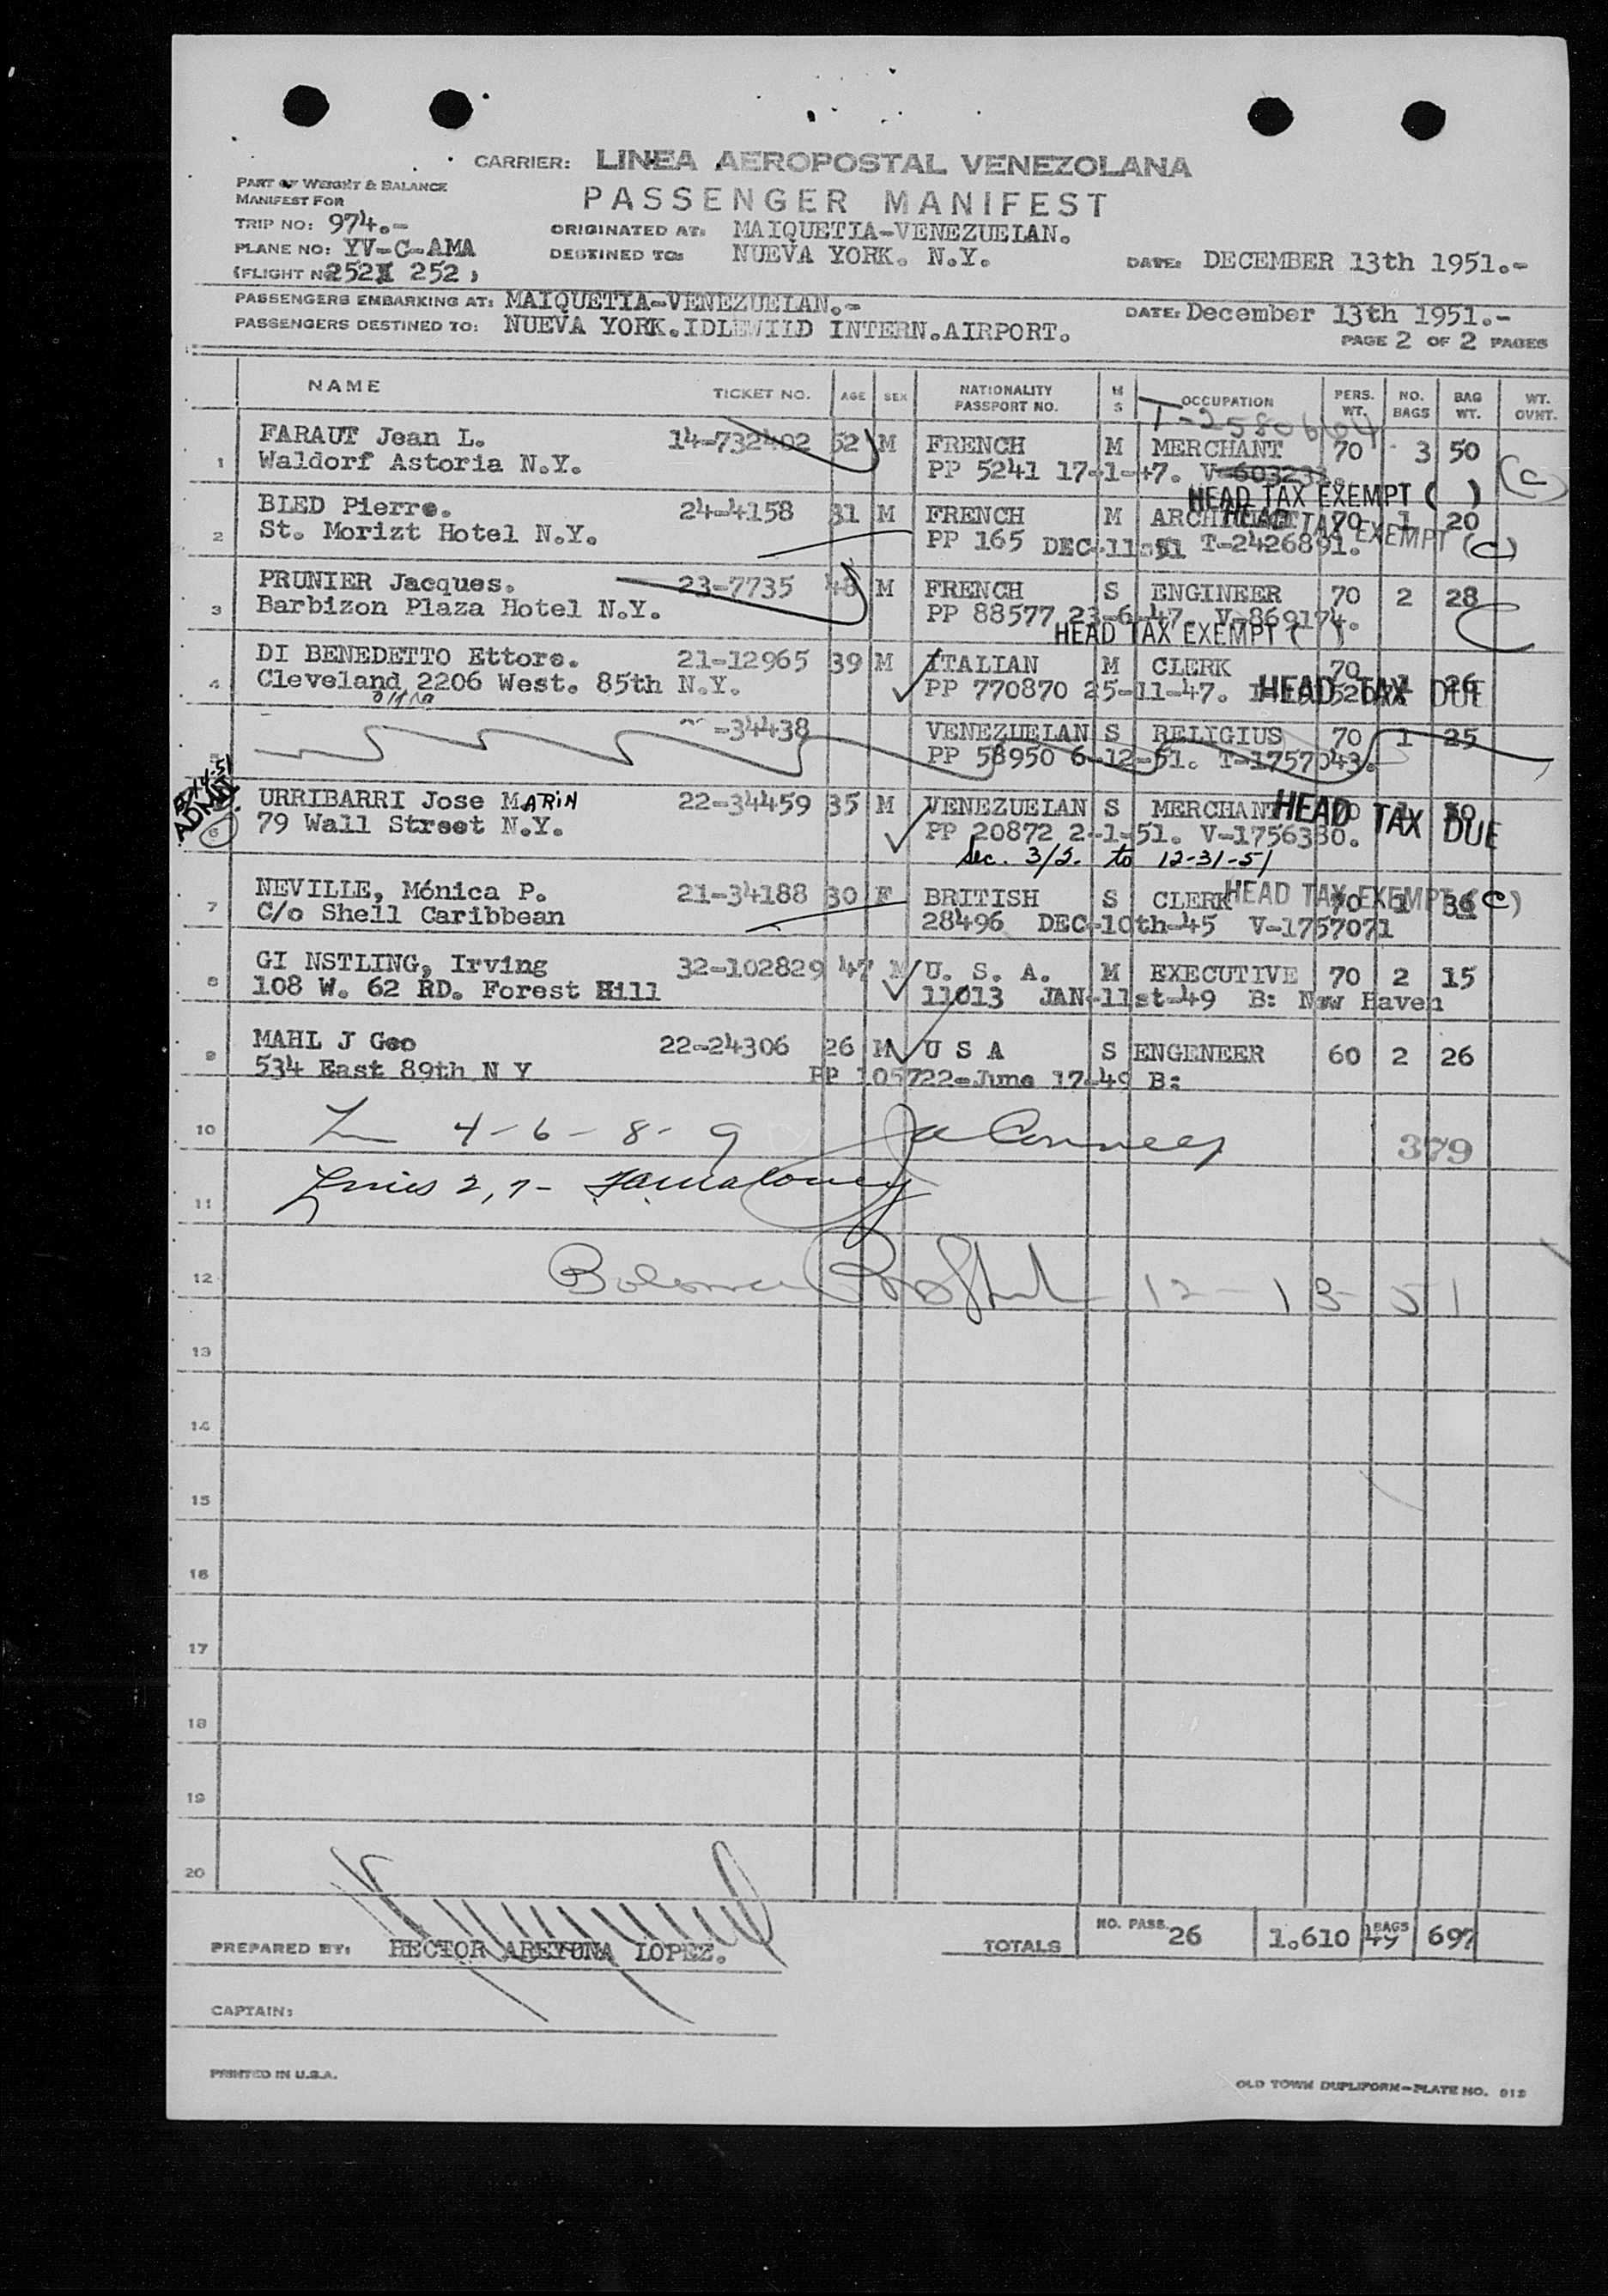 CARRIER: LINEA AEROPOSTAL VENEZOLANA
PART OF WEIGHT & BALANCE
MANIFEST FOR
PASSENGER MANIFEST
TRIP NO: 974.-
ORIGINATED AT: MAIQUETIA-VENEZUELAN.
PLANE NO: YV-C-AMA
DESTINED TO: NUEVA YORK. N.Y.
DATE: DECEMBER 13th 1951.-
(FLIGHT No 252 252 )
PASSENGERS EMBARKING AT: MAIQUETIA-VENEZUELAN.-
DATE: December 13th 1951.-
PASSENGERS DESTINED TO: NUEVA YORK. IDLEWILD INTERN.AIRPORT.
PAGE 2 OF 2 PAGES
NAME TICKET NO. AGE SEX NATIONALITY PASSPORT NO. M S OCCUPATION PERS. WT. NO. BAGS BAG WT. WT. OVHT.
T-2580664
1 FARAUT Jean L. 14-732402 52 M FRENCH M MERCHANT 70 3 50
Waldorf Astoria N.Y. PP 5241 17-1-47. V-603233. (C)
HEAD TAX EXEMPT ( )
2 BLED Pierre. 24-4158 31 M FRENCH M ARCHITECT 70 1 20
St. Morizt Hotel N.Y. PP 165 DEC-11-51 T-2426891. HEAD TAX EXEMPT (C)
3 PRUNIER Jacques. 23-7735 48 M FRENCH S ENGINEER 70 2 28
Barbizon Plaza Hotel N.Y. PP 88577 23-6-47. V-869174.
HEAD TAX EXEMPT ( )
4 DI BENEDETTO Ettore. 21-12965 39 M ITALIAN M CLERK 70 1 26
Cleveland 2206 West. 85th N.Y. PP 770870 25-11-47. HEAD TAX DUE
Ohio
-34438 VENEZUELAN S RELIGIUS 70 1 25
PP 58950 6-12-51. T-1757043.
ADMIT
6 URRIBARRI Jose MARIN 22-34459 35 M VENEZUELAN S MERCHANT 70 1 30
79 Wall Street N.Y. PP 20872 2-1-51. V-1756380. HEAD TAX DUE
Sec. 3/2. to 12-31-51
7 NEVILLE, Mónica P. 21-34188 30 F BRITISH S CLERK 70 1 36 HEAD TAX EXEMPT (C)
C/o Shell Caribbean 28496 DEC-10th-45 V-1757071
8 GI NSTLING, Irving 32-102829 47 M U. S. A. M EXECUTIVE 70 2 15
108 W. 62 RD. Forest Hill 11013 JAN-11st-49 B: New Haven
9 MAHL J Geo 22-24306 26 M U S A S ENGENEER 60 2 26
534 East 89th N Y PP 105722-June 17-49 B:
10 4-6-8-9 379
11 Lines 2, 7-
12 12-13-51
13
14
15
16
17
18
19
20
PREPARED BY: HECTOR AREYUNA LOPEZ.
TOTALS NO. PASS. 26 1.610 BAGS 47 697
CAPTAIN:
PRINTED IN U.S.A.
OLD TOWN DUPLIFORM-PLATE NO. 912